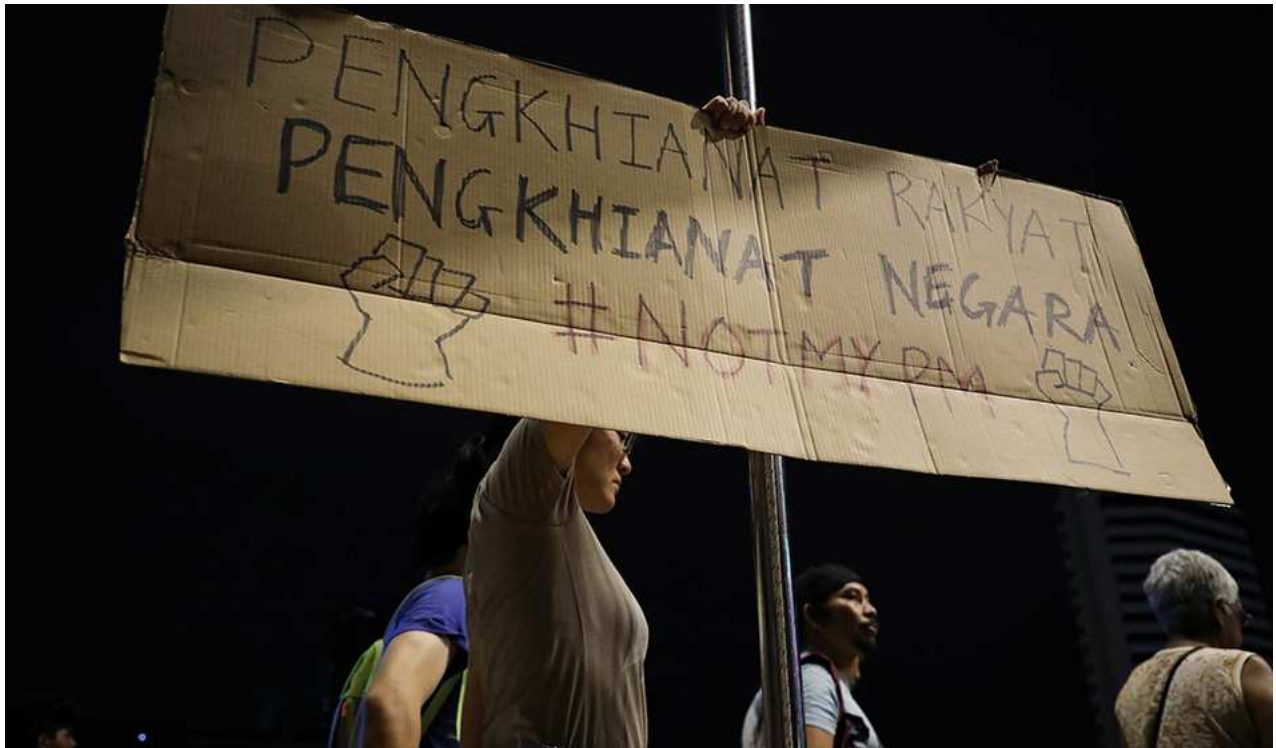 PENGKHIANAT RAKYAT
PENGKHIANAT NEGARA
#NOTMYPM